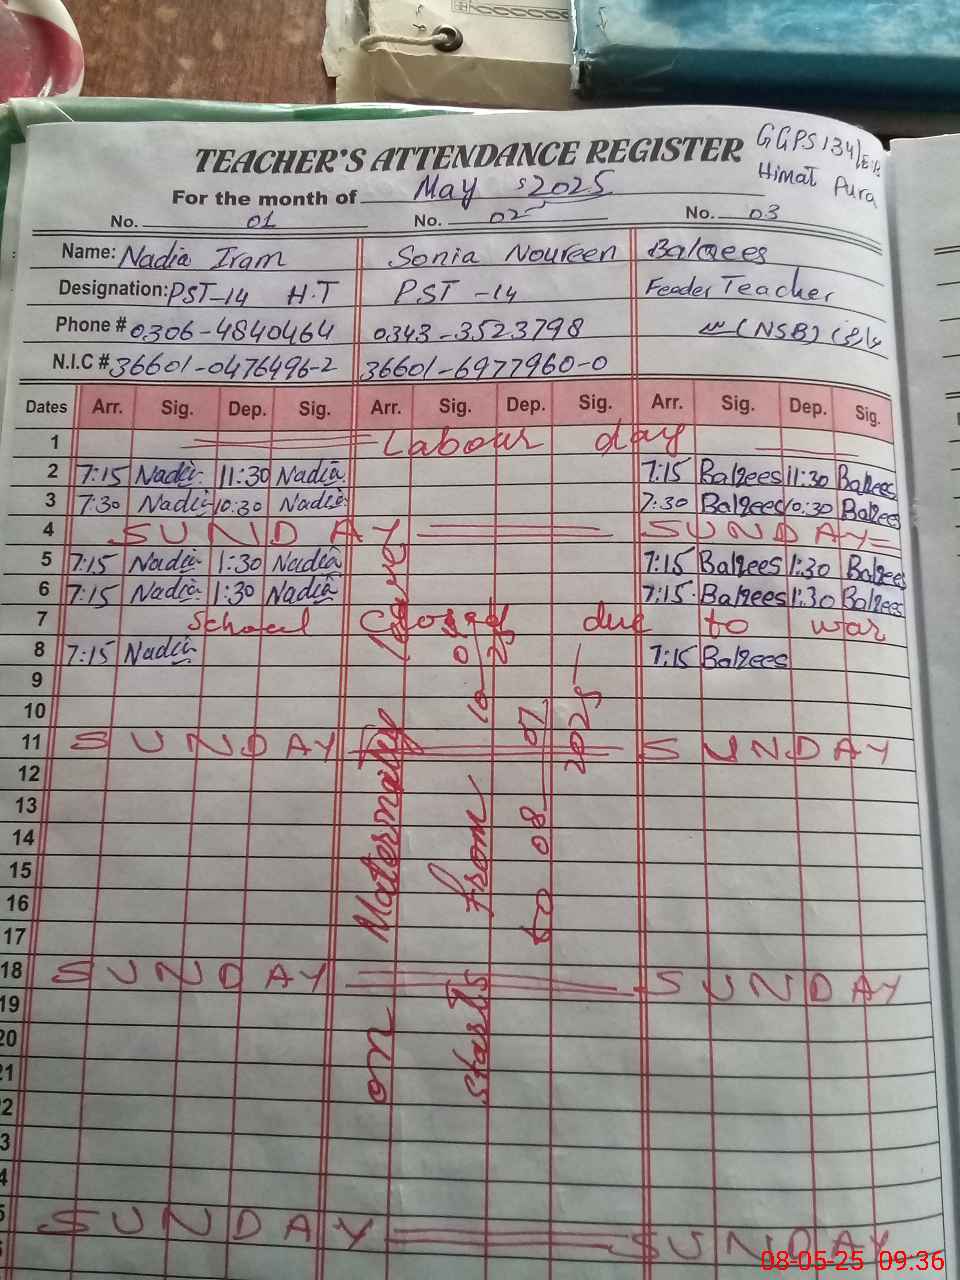 TEACHER'S ATTENDANCE REGISTER
GGPS 134/E.B
Himat Pura
For the month of May 2025
No. 01 No. 02 No. 03
Name: Nadia Iram Sonia Noureen Balqees
Designation: PST-14 H.T PST-14 Feeder Teacher
Phone # 0306-4840464 0343-3523798 (NSB)
N.I.C # 36601-0476496-2 36601-6977960-0
Dates Arr. Sig. Dep. Sig. Arr. Sig. Dep. Sig. Arr. Sig. Dep. Sig.
1 Labour day
2 7:15 Nadia 11:30 Nadia 7:15 Balqees 11:30 Balqees
3 7:30 Nadia 10:30 Nadia 7:30 Balqees 10:30 Balqees
4 SUNDAY SUNDAY
5 7:15 Nadia 1:30 Nadia 7:15 Balqees 1:30 Balqees
6 7:15 Nadia 1:30 Nadia 7:15 Balqees 1:30 Balqees
7 School Closed due to war
8 7:15 Nadia 7:15 Balqees
9
10
11 SUNDAY SUNDAY
12
13
14
15
16
17
18 SUNDAY SUNDAY
19
20
21
22
3
4
5 SUNDAY SUNDAY
on Maternity leave
starts from 10
to 08-07
2025
08-05-25 09:36